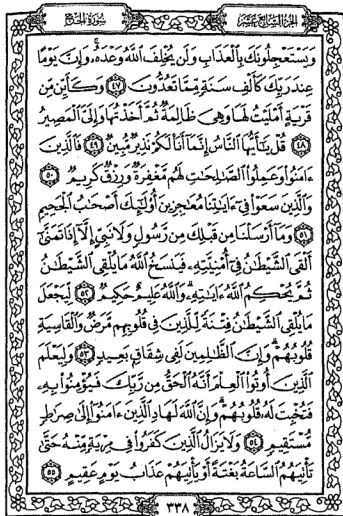 الجزء السابع عشر
سورة الحج
وَيَسْتَعْجِلُونَكَ بِالْعَذَابِ وَلَن يُخْلِفَ اللَّهُ وَعْدَهُۥ وَإِنَّ يَوْمًا
عِندَ رَبِّكَ كَأَلْفِ سَنَةٍ مِّمَّا تَعُدُّونَ ٤٧ وَكَأَيِّن مِّن
قَرْيَةٍ أَمْلَيْتُ لَهَا وَهِيَ ظَالِمَةٌ ثُمَّ أَخَذْتُهَا وَإِلَيَّ الْمَصِيرُ
٤٨ قُلْ يَٰٓأَيُّهَا النَّاسُ إِنَّمَآ أَنَا۠ لَكُمْ نَذِيرٌ مُّبِينٌ ٤٩ فَالَّذِينَ
ءَامَنُوا وَعَمِلُوا الصَّٰلِحَٰتِ لَهُم مَّغْفِرَةٌ وَرِزْقٌ كَرِيمٌ ٥٠
وَالَّذِينَ سَعَوْا فِيٓ ءَايَٰتِنَا مُعَٰجِزِينَ أُولَٰٓئِكَ أَصْحَٰبُ الْجَحِيمِ
٥١ وَمَآ أَرْسَلْنَا مِن قَبْلِكَ مِن رَّسُولٍ وَلَا نَبِيٍّ إِلَّآ إِذَا تَمَنَّىٰٓ
أَلْقَى الشَّيْطَٰنُ فِيٓ أُمْنِيَّتِهِۦ فَيَنسَخُ اللَّهُ مَا يُلْقِي الشَّيْطَٰنُ
ثُمَّ يُحْكِمُ اللَّهُ ءَايَٰتِهِۦ وَاللَّهُ عَلِيمٌ حَكِيمٌ ٥٢ لِّيَجْعَلَ
مَا يُلْقِي الشَّيْطَٰنُ فِتْنَةً لِّلَّذِينَ فِي قُلُوبِهِم مَّرَضٌ وَالْقَاسِيَةِ
قُلُوبُهُمْ وَإِنَّ الظَّٰلِمِينَ لَفِي شِقَاقٍ بَعِيدٍ ٥٣ وَلِيَعْلَمَ
الَّذِينَ أُوتُوا الْعِلْمَ أَنَّهُ الْحَقُّ مِن رَّبِّكَ فَيُؤْمِنُوا بِهِۦ
فَتُخْبِتَ لَهُۥ قُلُوبُهُمْ وَإِنَّ اللَّهَ لَهَادِ الَّذِينَ ءَامَنُوٓا إِلَىٰ صِرَٰطٍ
مُّسْتَقِيمٍ ٥٤ وَلَا يَزَالُ الَّذِينَ كَفَرُوا فِي مِرْيَةٍ مِّنْهُ حَتَّىٰ
تَأْتِيَهُمُ السَّاعَةُ بَغْتَةً أَوْ يَأْتِيَهُمْ عَذَابُ يَوْمٍ عَقِيمٍ ٥٥
٣٣٨